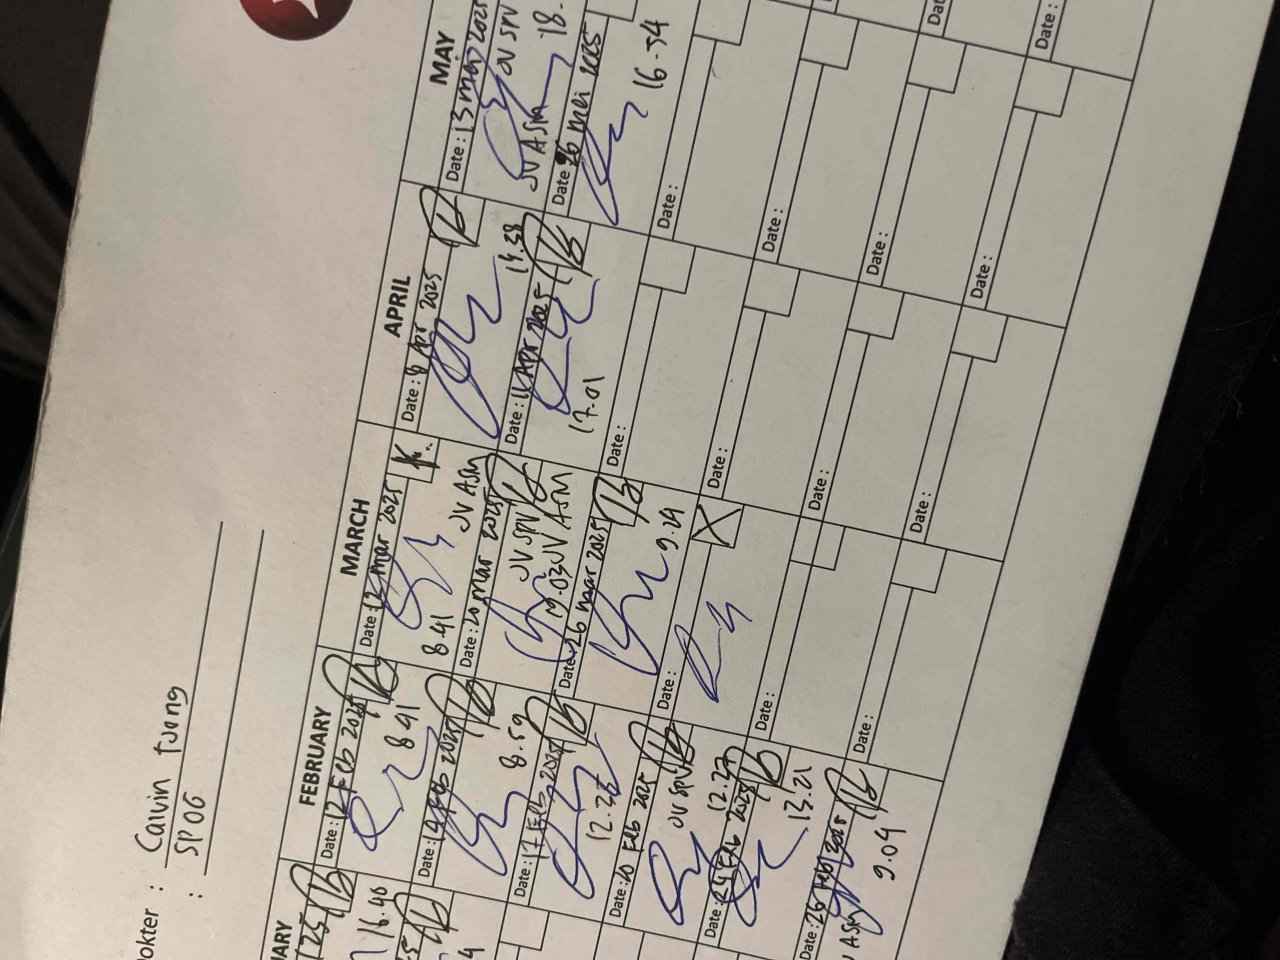 Dokter : Calvin Tjong
: SPOG
FEBRUARY
Date : 12 Feb 2025
8.41
Date : 14 Feb 2025
8.59
Date : 17 Feb 2025
12.26
Date : 20 Feb 2025
JV SPV
12.27
Date : 24 Feb 2025
13.21
Date : 26 Feb 2025
JV ASM
9.09
MARCH
Date : 12 Mar 2025
K.
8.41
JV ASM
Date : 20 Mar 2025
JV SPV
JV ASM
Date : 26 Mar 2025
9.29
Date :
X
Date :
Date :
APRIL
Date : 8 Apr 2025
14.38
Date : 11 Apr 2025
17.01
Date :
Date :
Date :
Date :
MAY
Date : 13 May 2025
JV SPV
JV ASM
18.
Date : 26 Mei 2025
16.54
Date :
Date :
Date :
Date :
Date :
16.46